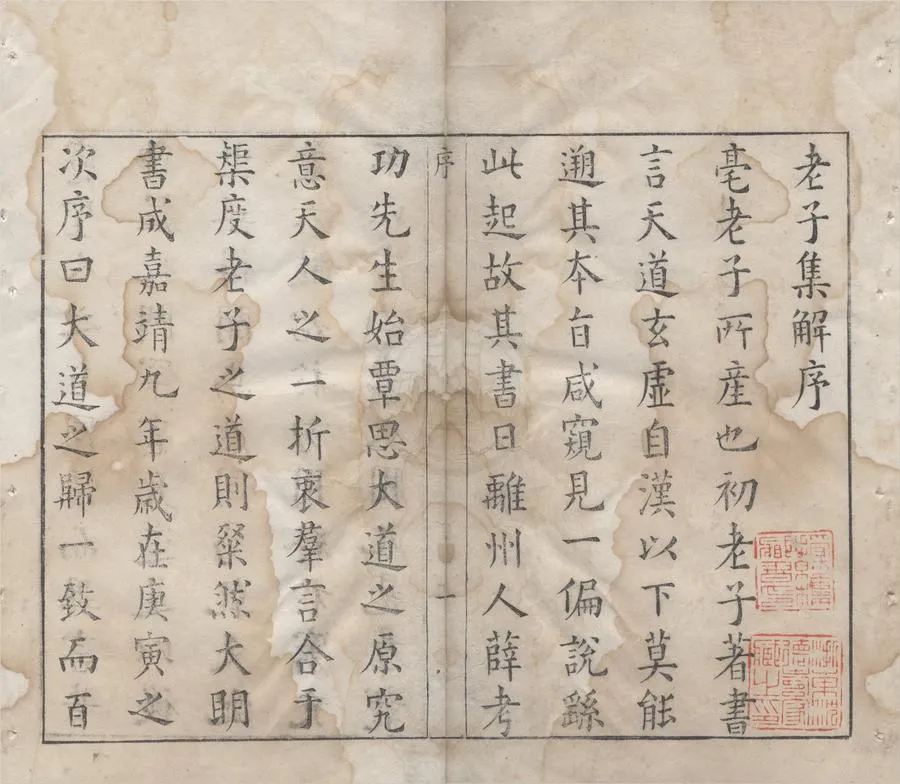 老子集解序
亳老子所産也初老子著書
言天道玄虛自漢以下莫能
遡其本旨咸窺見一偏說繇
此起故其書日離州人薛考
序
一
功先生始覃思大道之原究
意天人之一折衷羣言合于
榘度老子之道則粲然大明
書成嘉靖九年歲在庚寅之
次序曰大道之歸一致而百